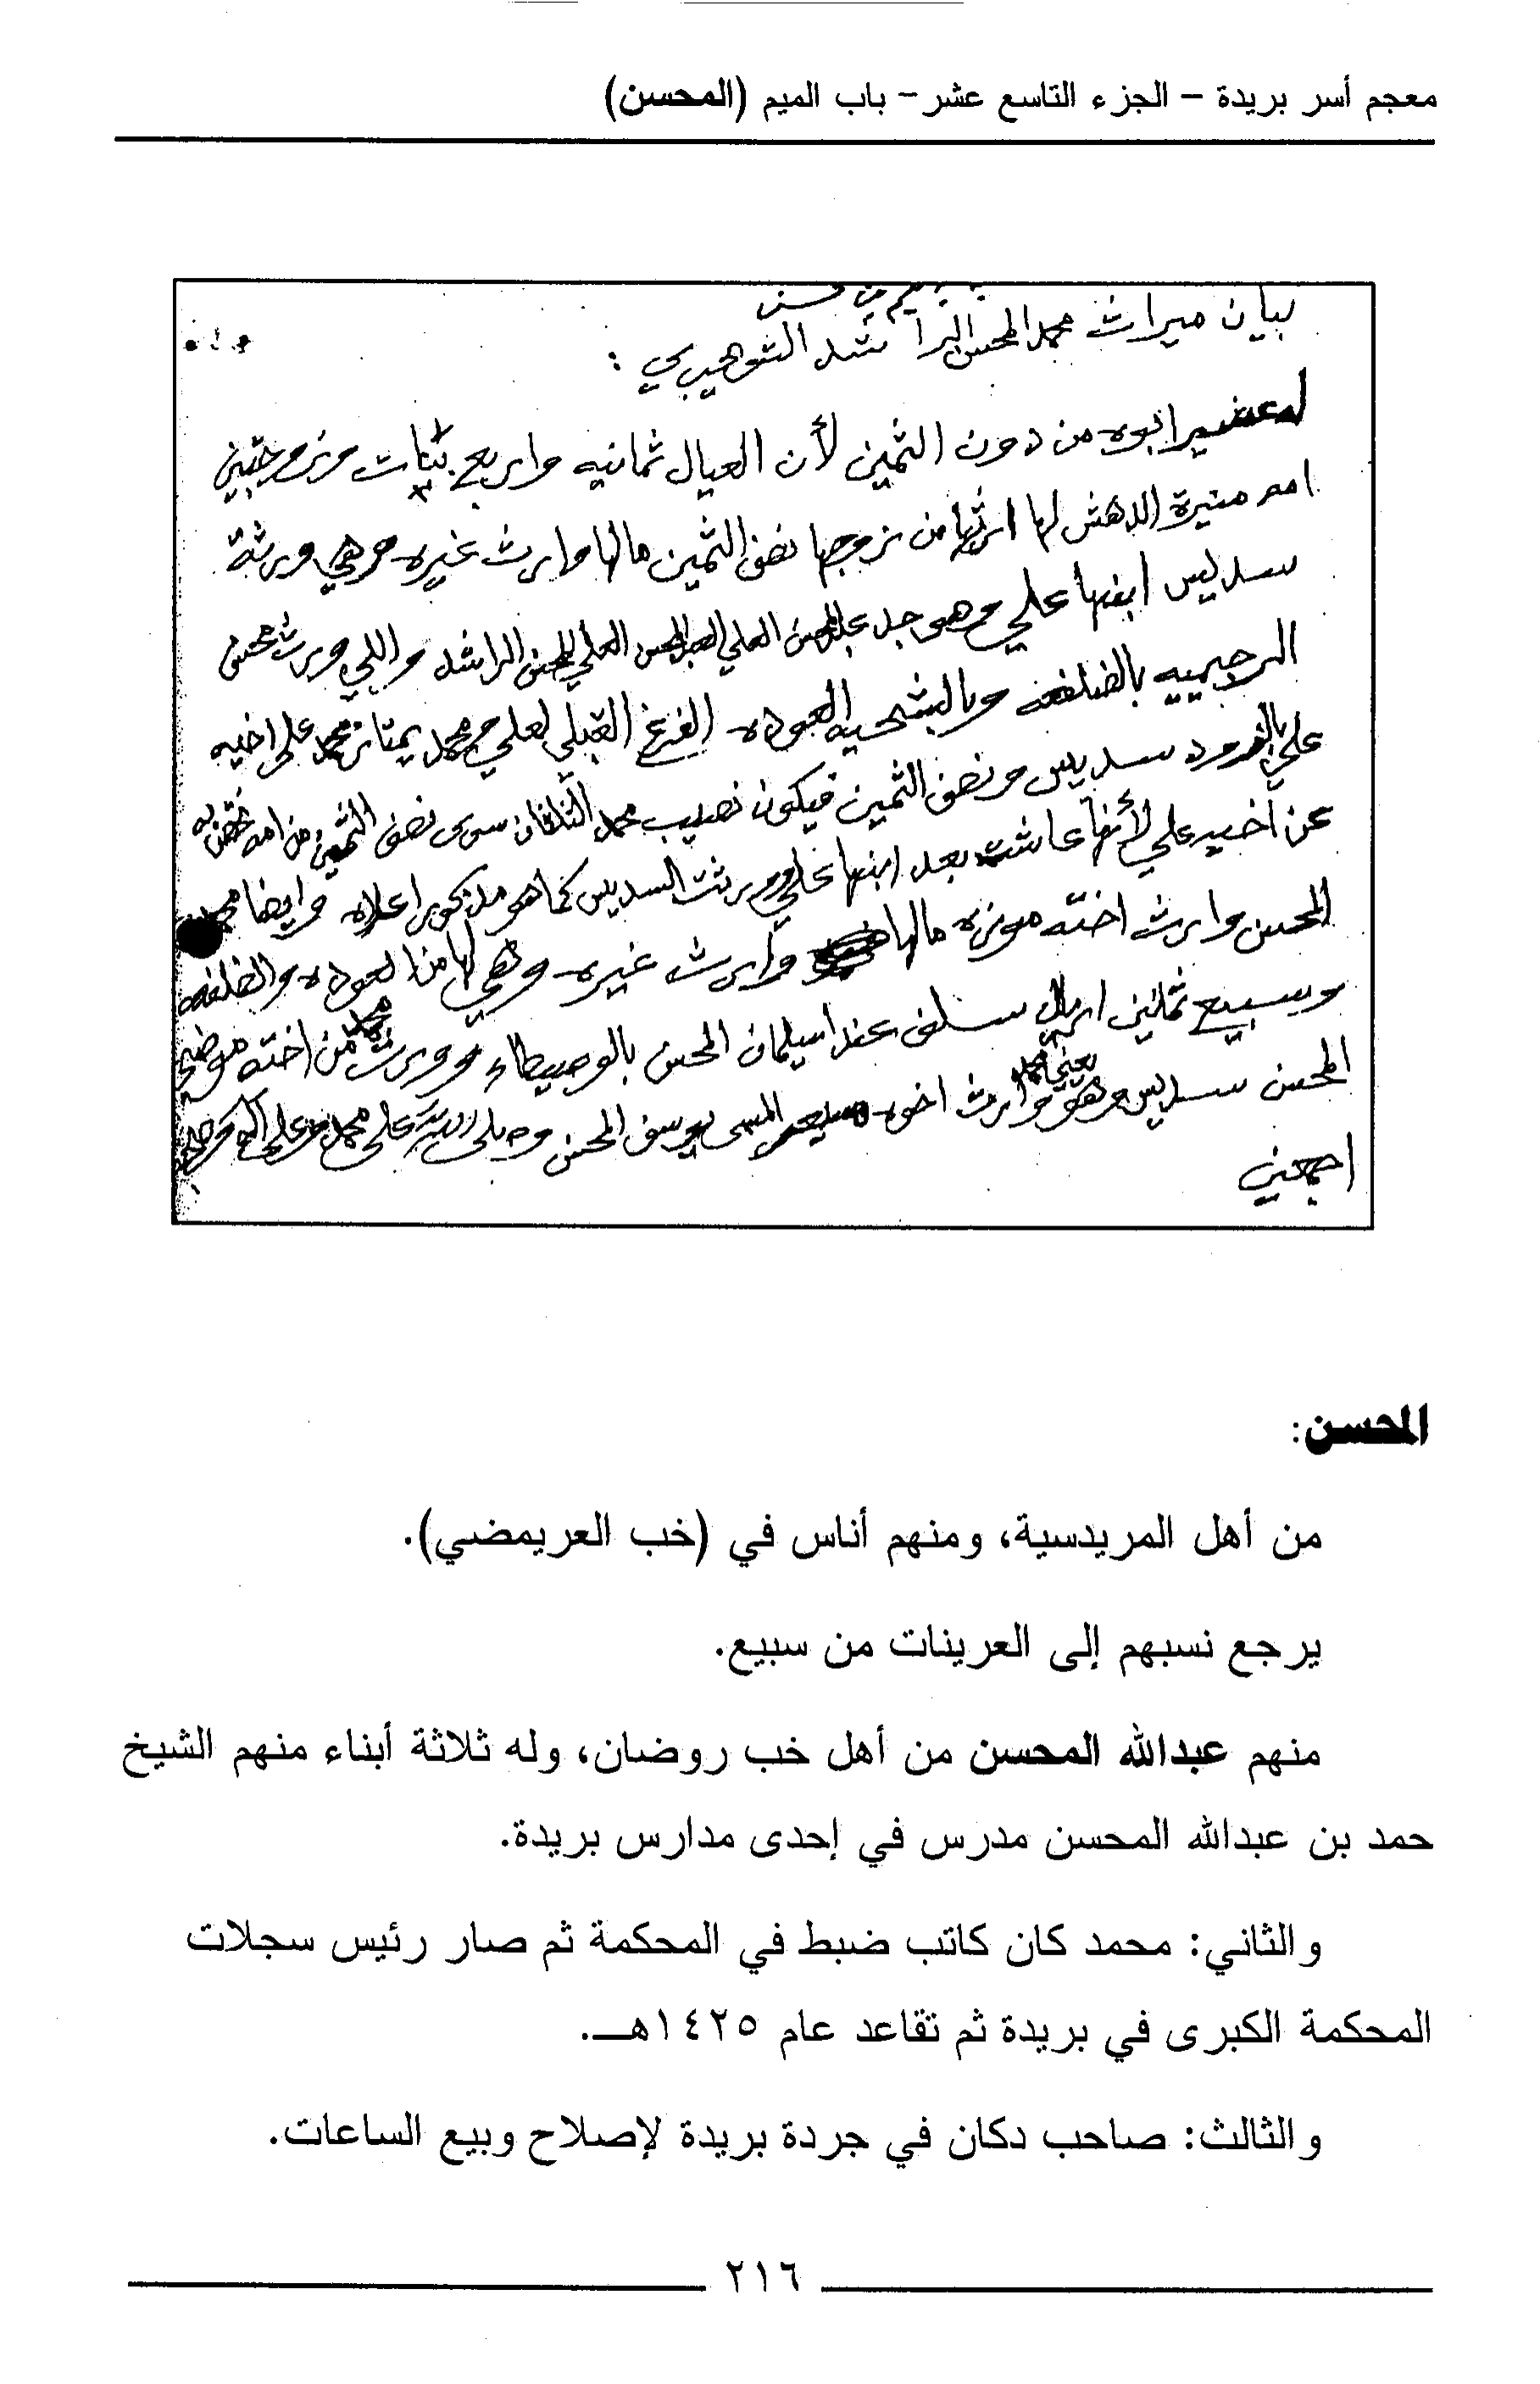 معجم أسر بريدة - الجزء التاسع عشر- باب الميم (المحسن)
بيان ميراث محمد المحسن الراشد الشوهيبي :
ابوه من دون الثمين لأن العيال ثمانيه واربع بنات وزوجتين
امه منيرة الدهش لها ارثها من زوجها نصف الثمين مالها وارث غيره وهي ورثة
سديس ابنها علي وهو جد عبدالمحسن العلي العبدالمحسن العلي المحسن الراشد واللي ورث محسن
الرجيبيه بالضلفعه العوده الفرغ القبلي لعلي ومحمد يمتاز محمد على اخيه
علي سديس ونصف الثمين فيكون نصيب محمد الثلثان سوى نصف الثمين من امه
عن اخيه علي لأنها عاشت بعد ابنها علي وورثت السديس كما هو مذكور اعلاه وايضا محمد
المحسن وارث اخته موزه مالها وارث غيره وهي لها من العوده والضلفعه
وسبيع ثمنين اريل سلف عند اسليمان المحسن وورث محمد من اخته موضي
المحسن سديس وهو يعني محمد وارث اخوه المسمى يوسف المحسن وصلى الله على محمد وعلى آله وصحبه
اجمعين
المحسن:
من أهل المريدسية، ومنهم أناس في (خب العريمضي).
يرجع نسبهم إلى العرينات من سبيع.
منهم عبدالله المحسن من أهل خب روضان، وله ثلاثة أبناء منهم الشيخ
حمد بن عبدالله المحسن مدرس في إحدى مدارس بريدة.
والثاني: محمد كان كاتب ضبط في المحكمة ثم صار رئيس سجلات
المحكمة الكبرى في بريدة ثم تقاعد عام ١٤٢٥هـ.
والثالث: صاحب دكان في جردة بريدة لإصلاح وبيع الساعات.
٢١٦